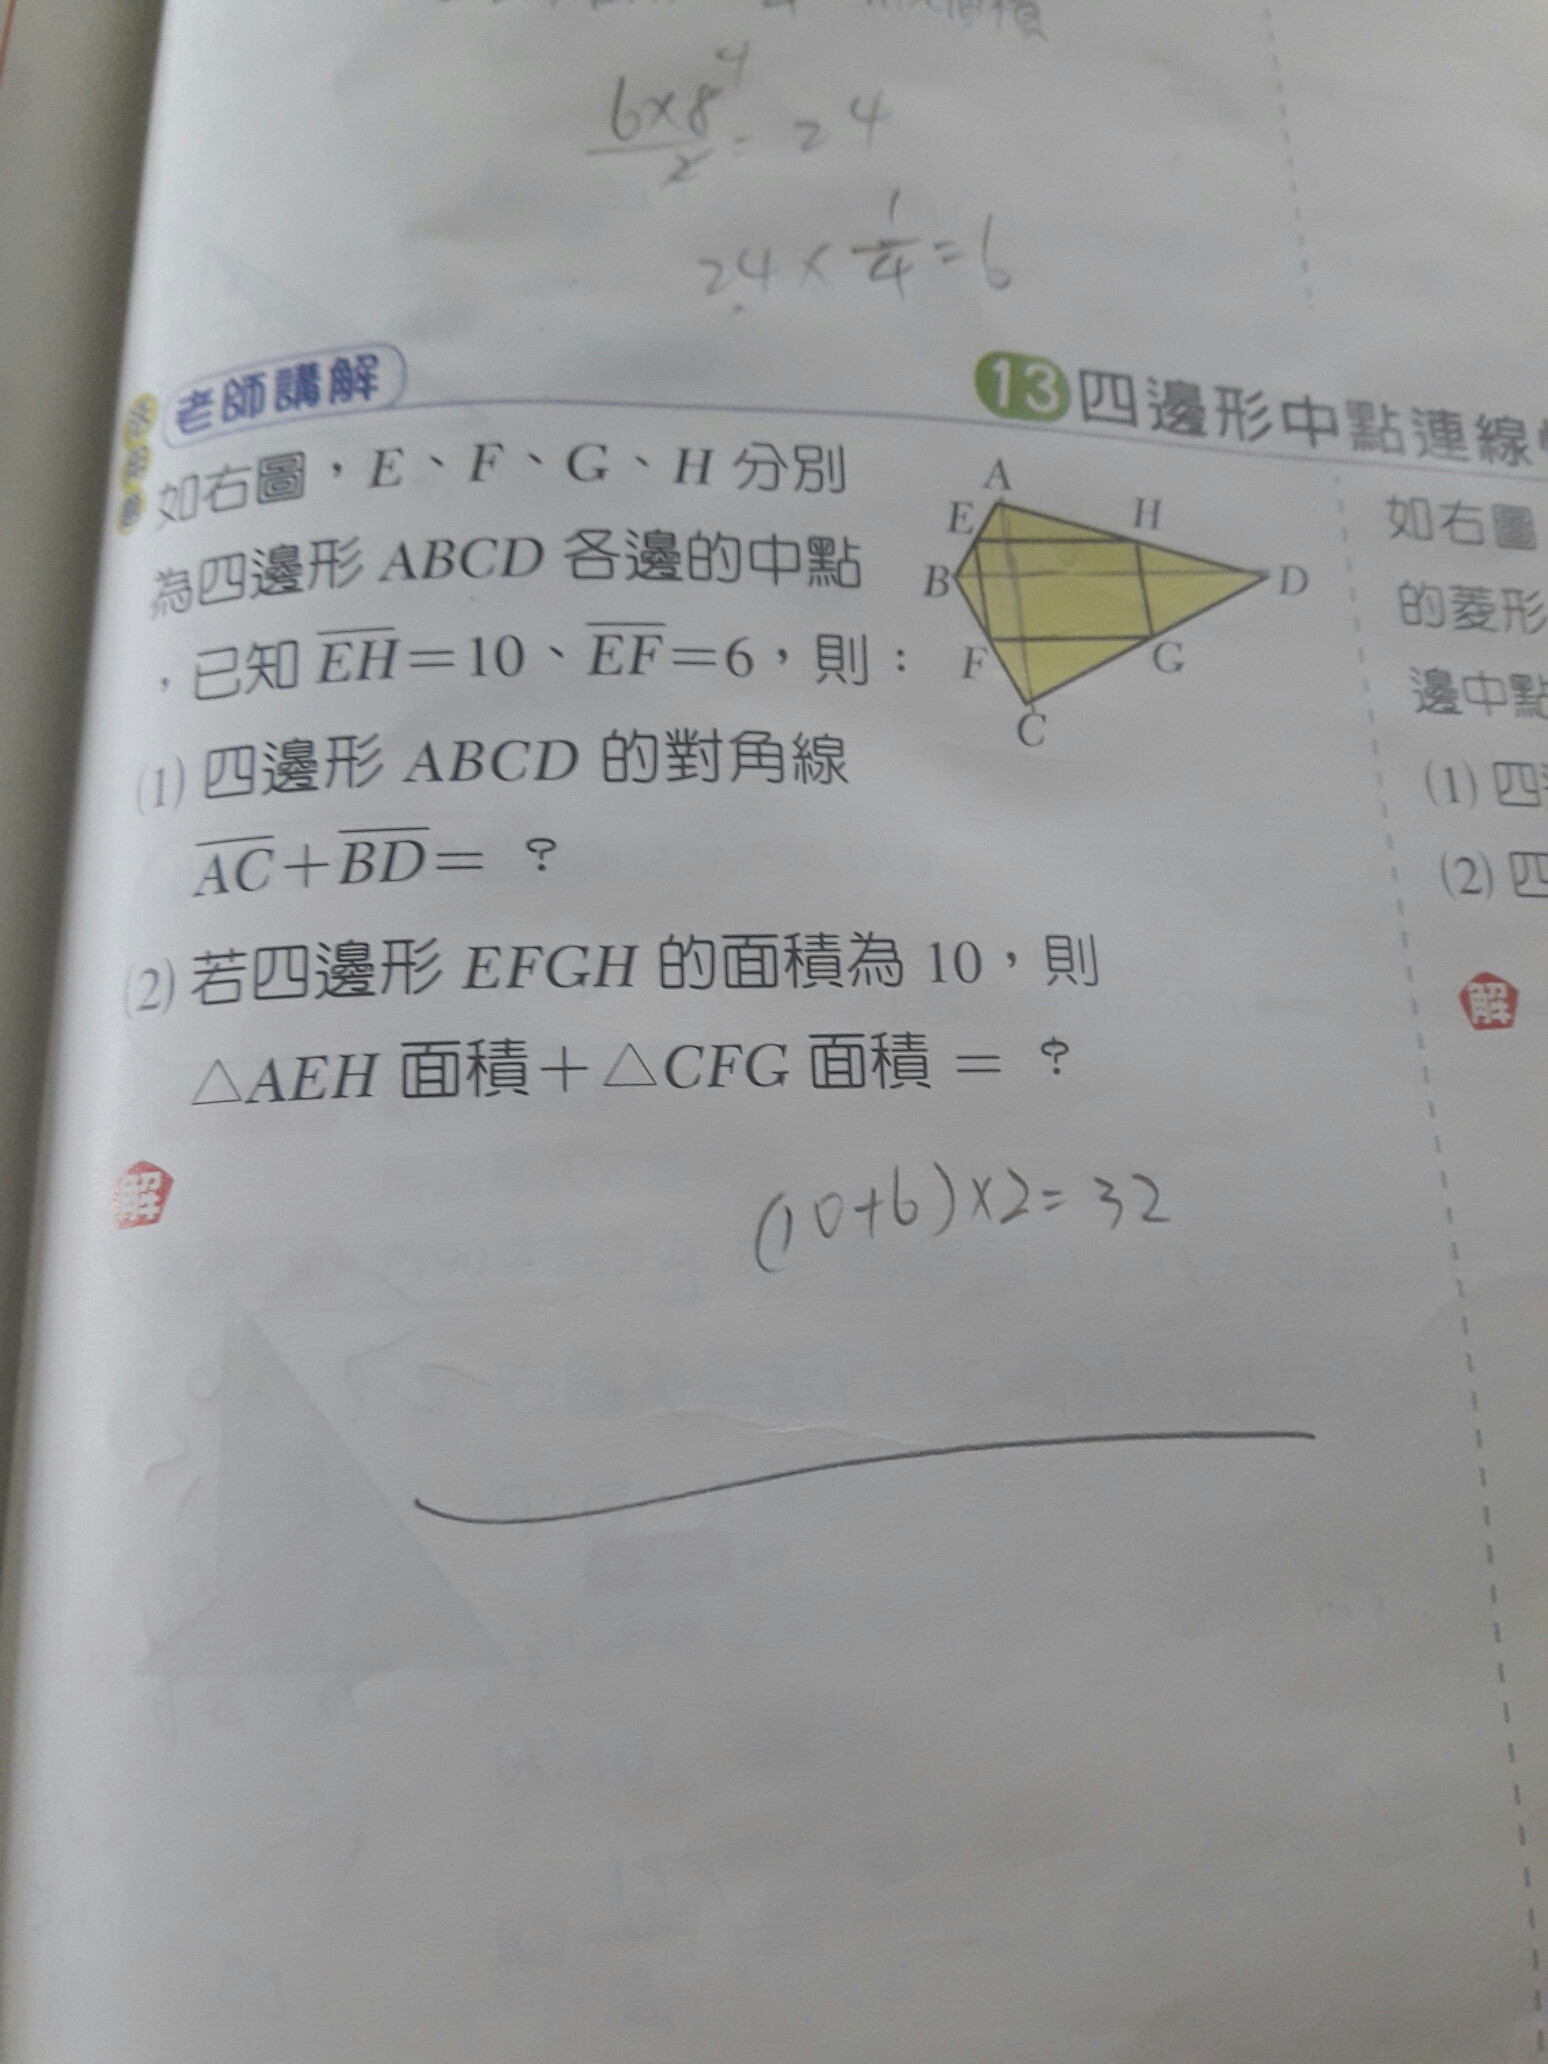 6×8 4
2 = 24
24 × 1/4 = 6
老師講解
13 四邊形中點連線
如右圖，E、F、G、H 分別
為四邊形 ABCD 各邊的中點
，已知 EH＝10、EF＝6，則：
A
E
H
B
D
F
G
C
(1) 四邊形 ABCD 的對角線
AC＋BD＝ ？
(2) 若四邊形 EFGH 的面積為 10，則
△AEH 面積＋△CFG 面積 ＝ ？
解
(10+6)×2=32
如右圖
的菱形
邊中點
(1) 四
(2) 四
解